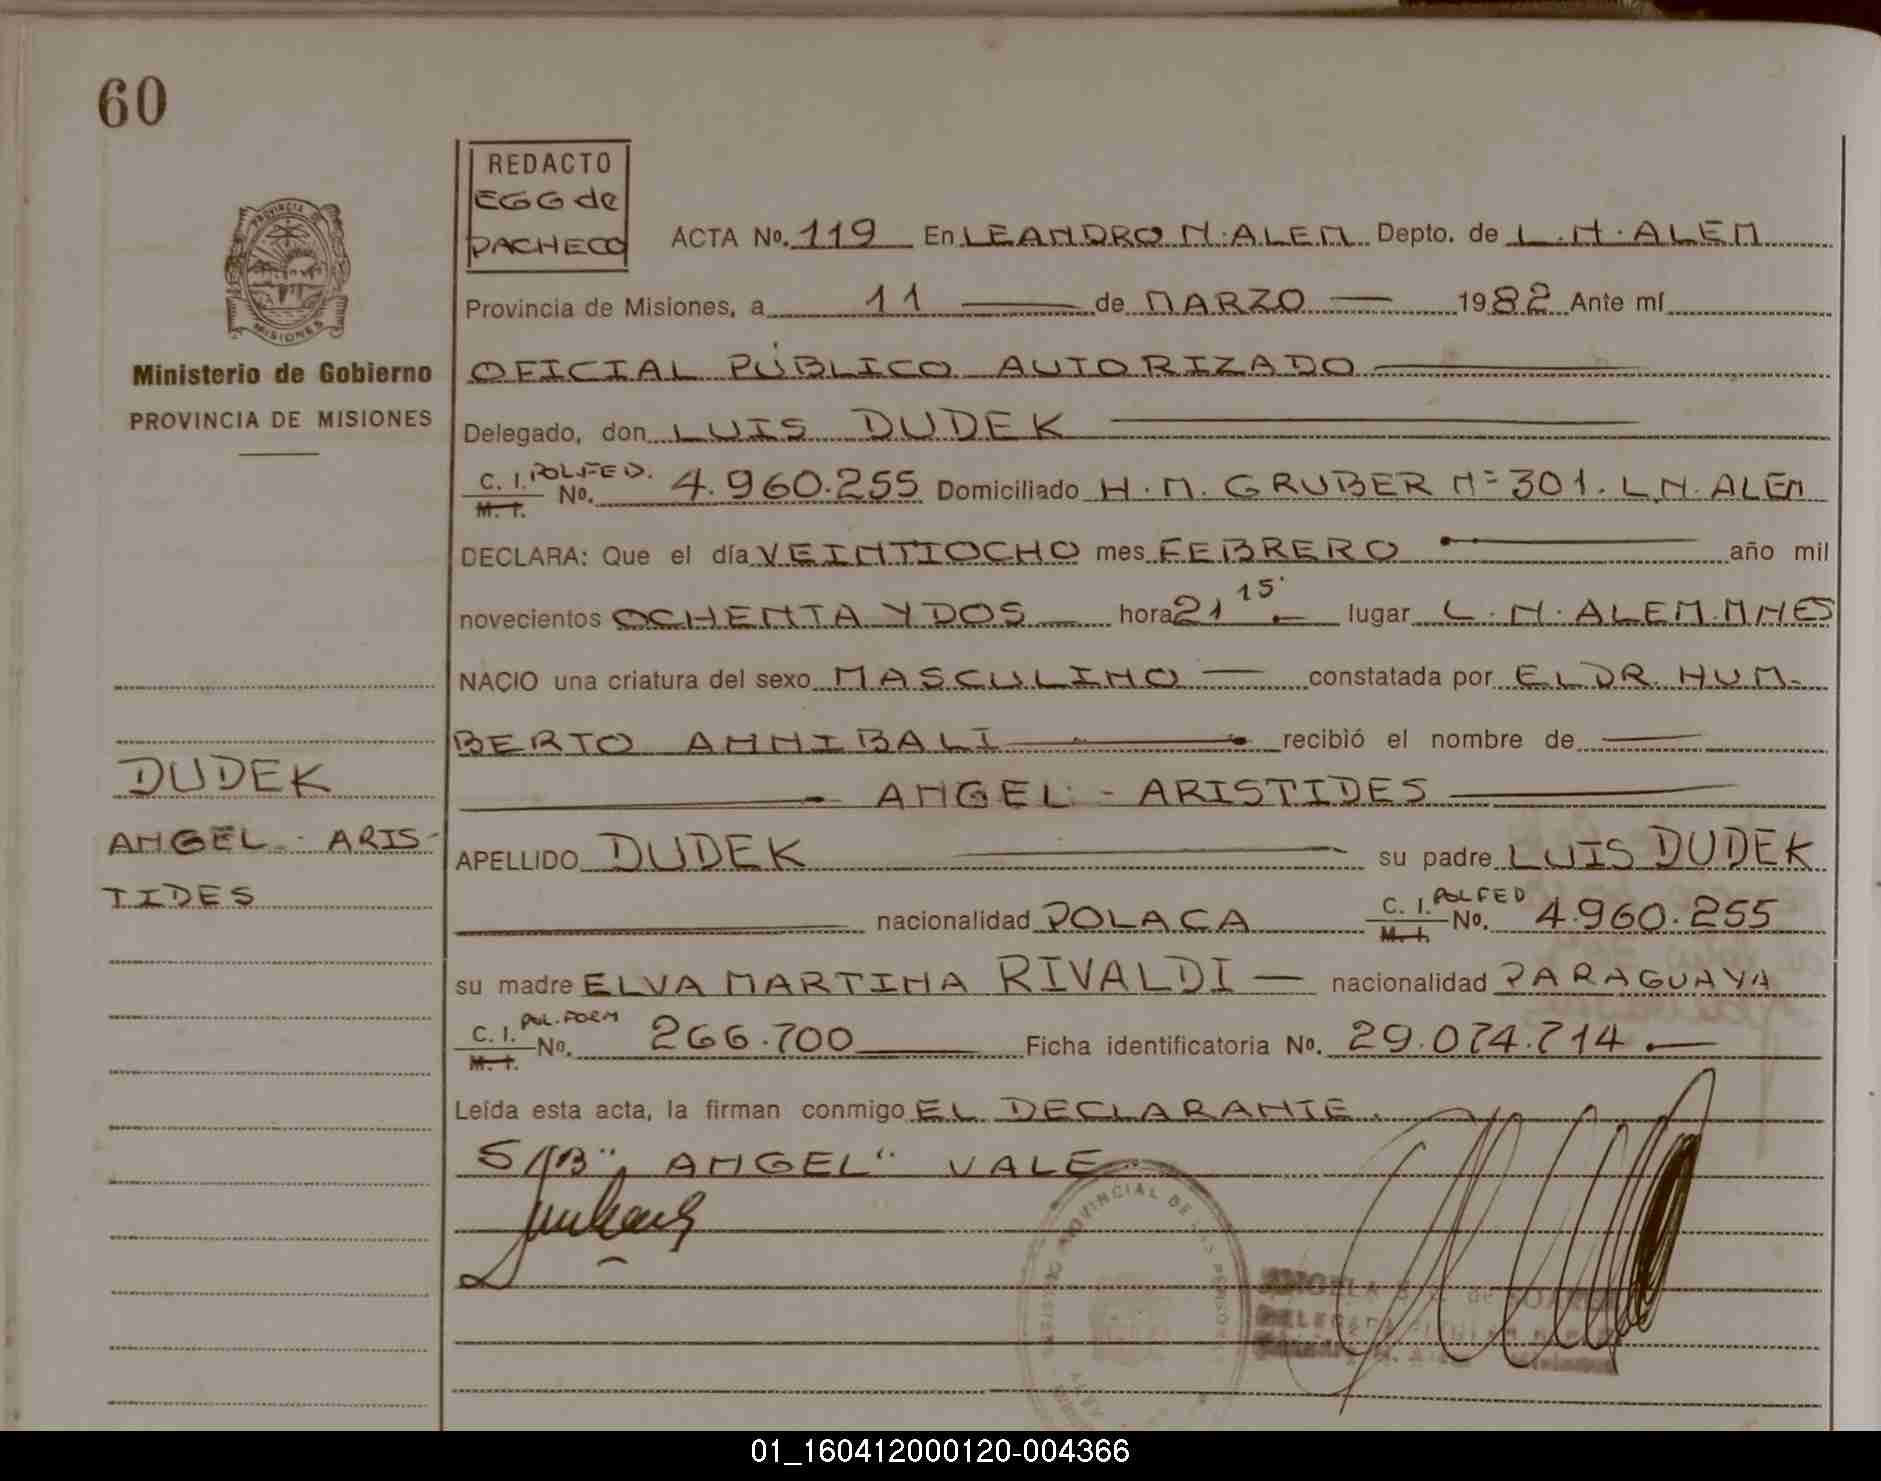 60
REDACTO
EGG de
PACHECO
PROVINCIA DE
MISIONES
Ministerio de Gobierno
PROVINCIA DE MISIONES
ACTA No. 119 En LEANDRO N. ALEM Depto. de L. N. ALEM
Provincia de Misiones, a 11 de MARZO 1982 Ante mí
OFICIAL PÚBLICO AUTORIZADO
Delegado, don LUIS DUDEK
C. I. POL.FED.
M. I. No. 4.960.255 Domiciliado H. M. GRUBER Nº 301. L.N. ALEM
DECLARA: Que el día VEINTIOCHO mes FEBRERO año mil
novecientos OCHENTA Y DOS hora 21 15' lugar L. N. ALEM. MNES
NACIO una criatura del sexo MASCULINO constatada por EL DR. HUM-
BERTO ANNIBALI recibió el nombre de
ANGEL - ARISTIDES
APELLIDO DUDEK su padre LUIS DUDEK
nacionalidad POLACA C. I. POLFED M. I. No. 4.960.255
su madre ELVA MARTINA RIVALDI nacionalidad PARAGUAYA
C. I. POL. FORM M. I. No. 266.700 Ficha identificatoria No. 29.074.714.
Leída esta acta, la firman conmigo EL DECLARANTE.
S/B "ANGEL" VALE
DUDEK
ANGEL - ARIS-
TIDES
REGISTRO PROVINCIAL DE LAS PERSONAS
ANGELA S. de
01_160412000120-004366